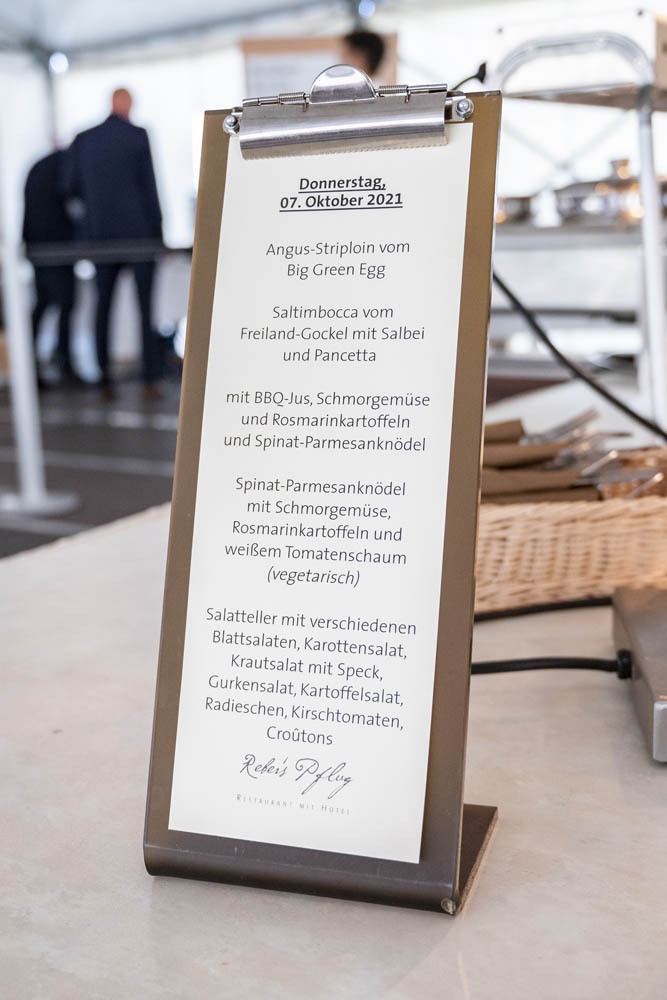 Donnerstag,
07. Oktober 2021
Angus-Striploin vom
Big Green Egg
Saltimbocca vom
Freiland-Gockel mit Salbei
und Pancetta
mit BBQ-Jus, Schmorgemüse
und Rosmarinkartoffeln
und Spinat-Parmesanknödel
Spinat-Parmesanknödel
mit Schmorgemüse,
Rosmarinkartoffeln und
weißem Tomatenschaum
(vegetarisch)
Salatteller mit verschiedenen
Blattsalaten, Karottensalat,
Krautsalat mit Speck,
Gurkensalat, Kartoffelsalat,
Radieschen, Kirschtomaten,
Croûtons
Reber's Pflug
Restaurant mit Hotel